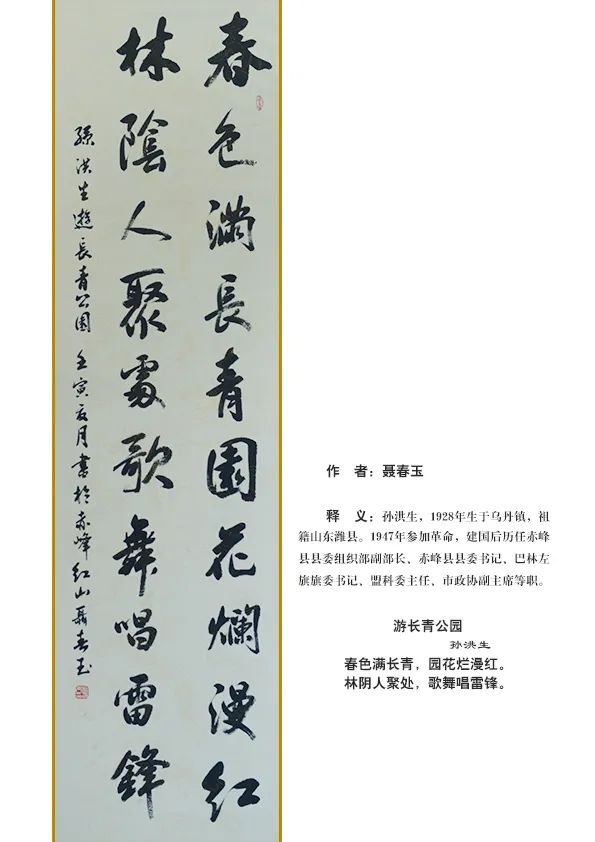 春色滿長青園花爛漫紅
林陰人聚處歌舞唱雷鋒
孫洪生遊長青公園 壬寅夏月書於赤峰紅山聶春玉
作 者：聂春玉
释 义：孙洪生，1928年生于乌丹镇，祖
籍山东潍县。1947年参加革命，建国后历任赤峰
县县委组织部副部长、赤峰县县委书记、巴林左
旗旗委书记、盟科委主任、市政协副主席等职。
游长青公园
孙洪生
春色满长青，园花烂漫红。
林阴人聚处，歌舞唱雷锋。